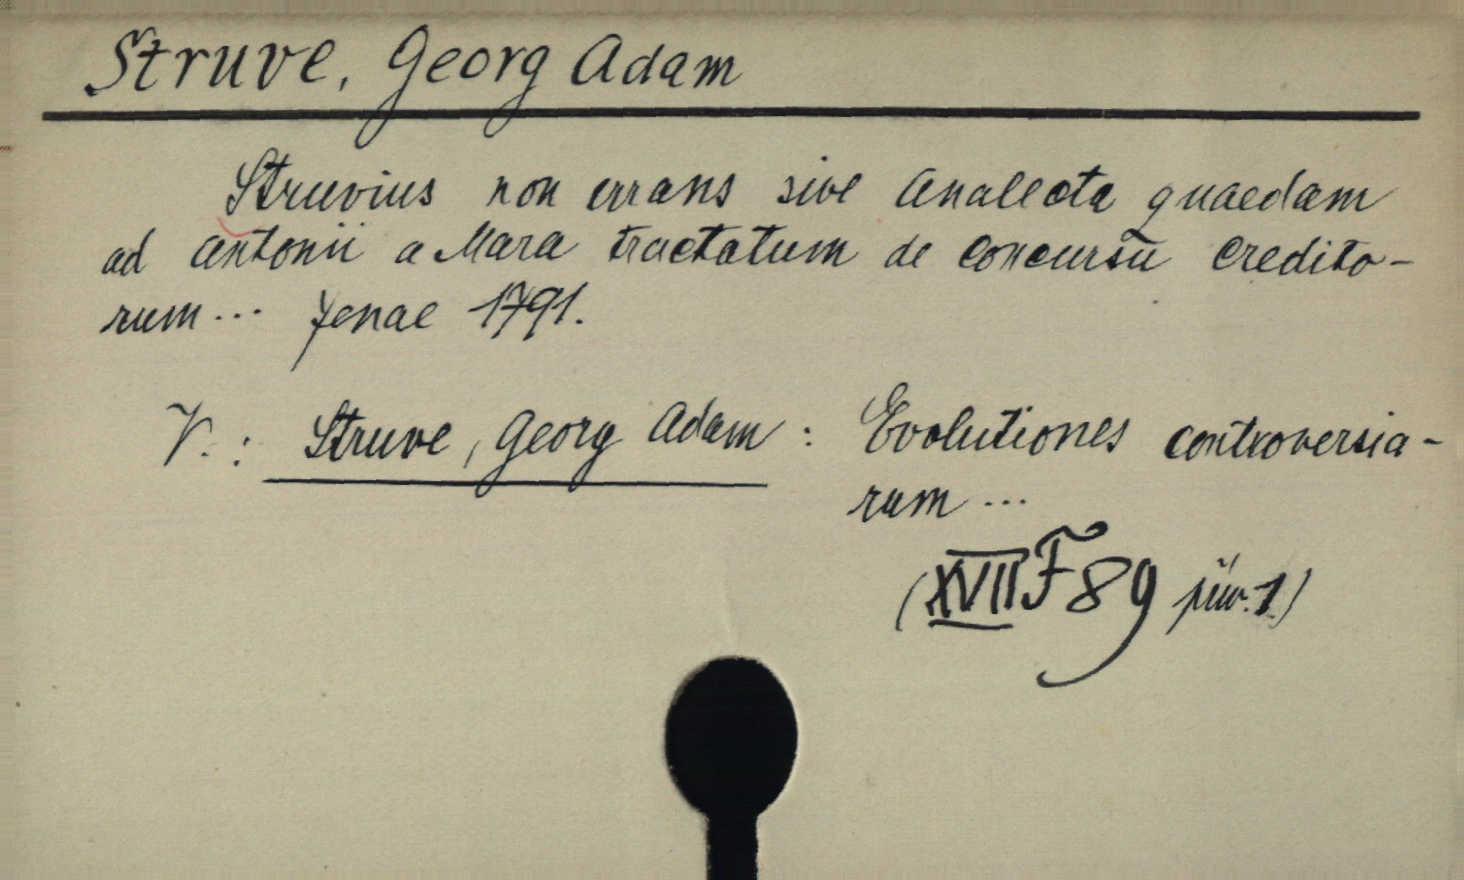 Struve, Georg Adam
Struvius non errans sive Analecta quaedam
ad Antonii a Mara tractatum de Concursu Credito-
rum... Jenae 1791.
V.: Struve, Georg Adam: Evolutiones controversia-
rum...
(XVII F 89 přív. 1)